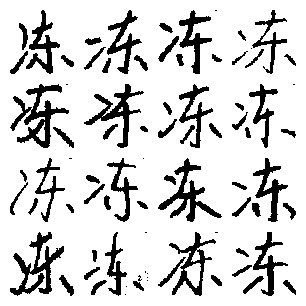 冻冻冻冻
冻冻冻冻
冻冻冻冻
冻冻冻冻